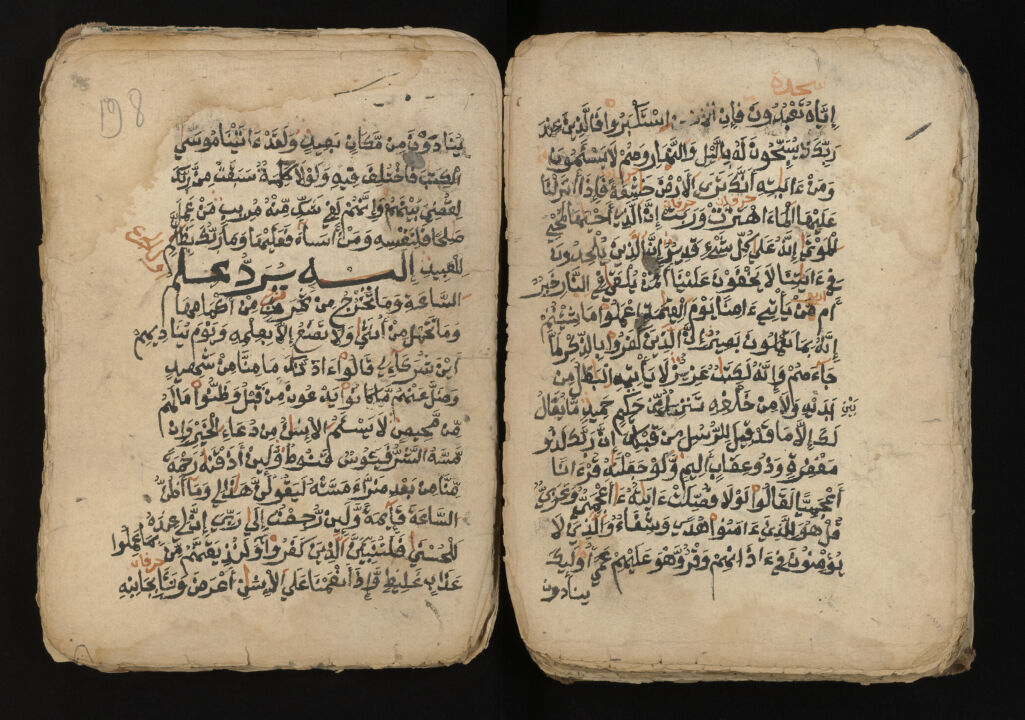 سجدة
إياه تعبدون فإن استكبروا فالذين عند
ربك يسبحون له باليل والنهار وهم لا يسئمون
ومن ءايته أنك ترى الارض خشعة فإذا أنزلنا
عليها الماء اهتزت وربت إن الذي أحياها لمحي
الموتى إنه على كل شيء قدير إن الذين يلحدون
في ءايتنا لا يخفون علينا أفمن يلقى في النار خير
أم من ياتي ءامنا يوم القيمة اعملوا ما شئتم
إنه بما تعملون بصير إن الذين كفروا بالذكر لما
جاءهم وإنه لكتب عزيز لا ياتيه البطل من
بين يديه ولا من خلفه تنزيل من حكيم حميد ما يقال
لك إلا ما قد قيل للرسل من قبلك إن ربك لذو
مغفرة وذو عقاب أليم ولو جعلنه قرءانا
أعجميا لقالوا لولا فصلت ءايته ءاعجمي وعربي
قل هو للذين ءامنوا هدى وشفاء والذين لا
يومنون في ءاذانهم وقر وهو عليهم عمى أوليك
ينادون
198
ينادون من مكان بعيد ولقد ءاتينا موسى
الكتب فاختلف فيه ولولا كلمة سبقت من ربك
لقضي بينهم وإنهم لفي شك منه مريب من عمل
صلحا فلنفسه ومن أساء فعليها وما ربك بظلم
للعبيد إليه يرد علم
الساعة وما تخرج من ثمرت من أكمامها
وما تحمل من أنثى ولا تضع إلا بعلمه ويوم يناديهم
أين شركاءي قالوا ءاذنك ما منا من شهيد
وضل عنهم ما كانوا يدعون من قبل وظنوا ما لهم
من محيص لا يسئم الانسن من دعاء الخير وإن
مسه الشر فيئوس قنوط ولين أذقنه رحمة
منا من بعد ضراء مسته ليقولن هذا لي وما أظن
الساعة قايمة ولين رجعت إلى ربي إن لي عنده
للحسنى فلننبين الذين كفروا بما عملوا ولنذيقنهم من
عذاب غليظ وإذا أنعمنا على الانسن أعرض ونئا بجانبه